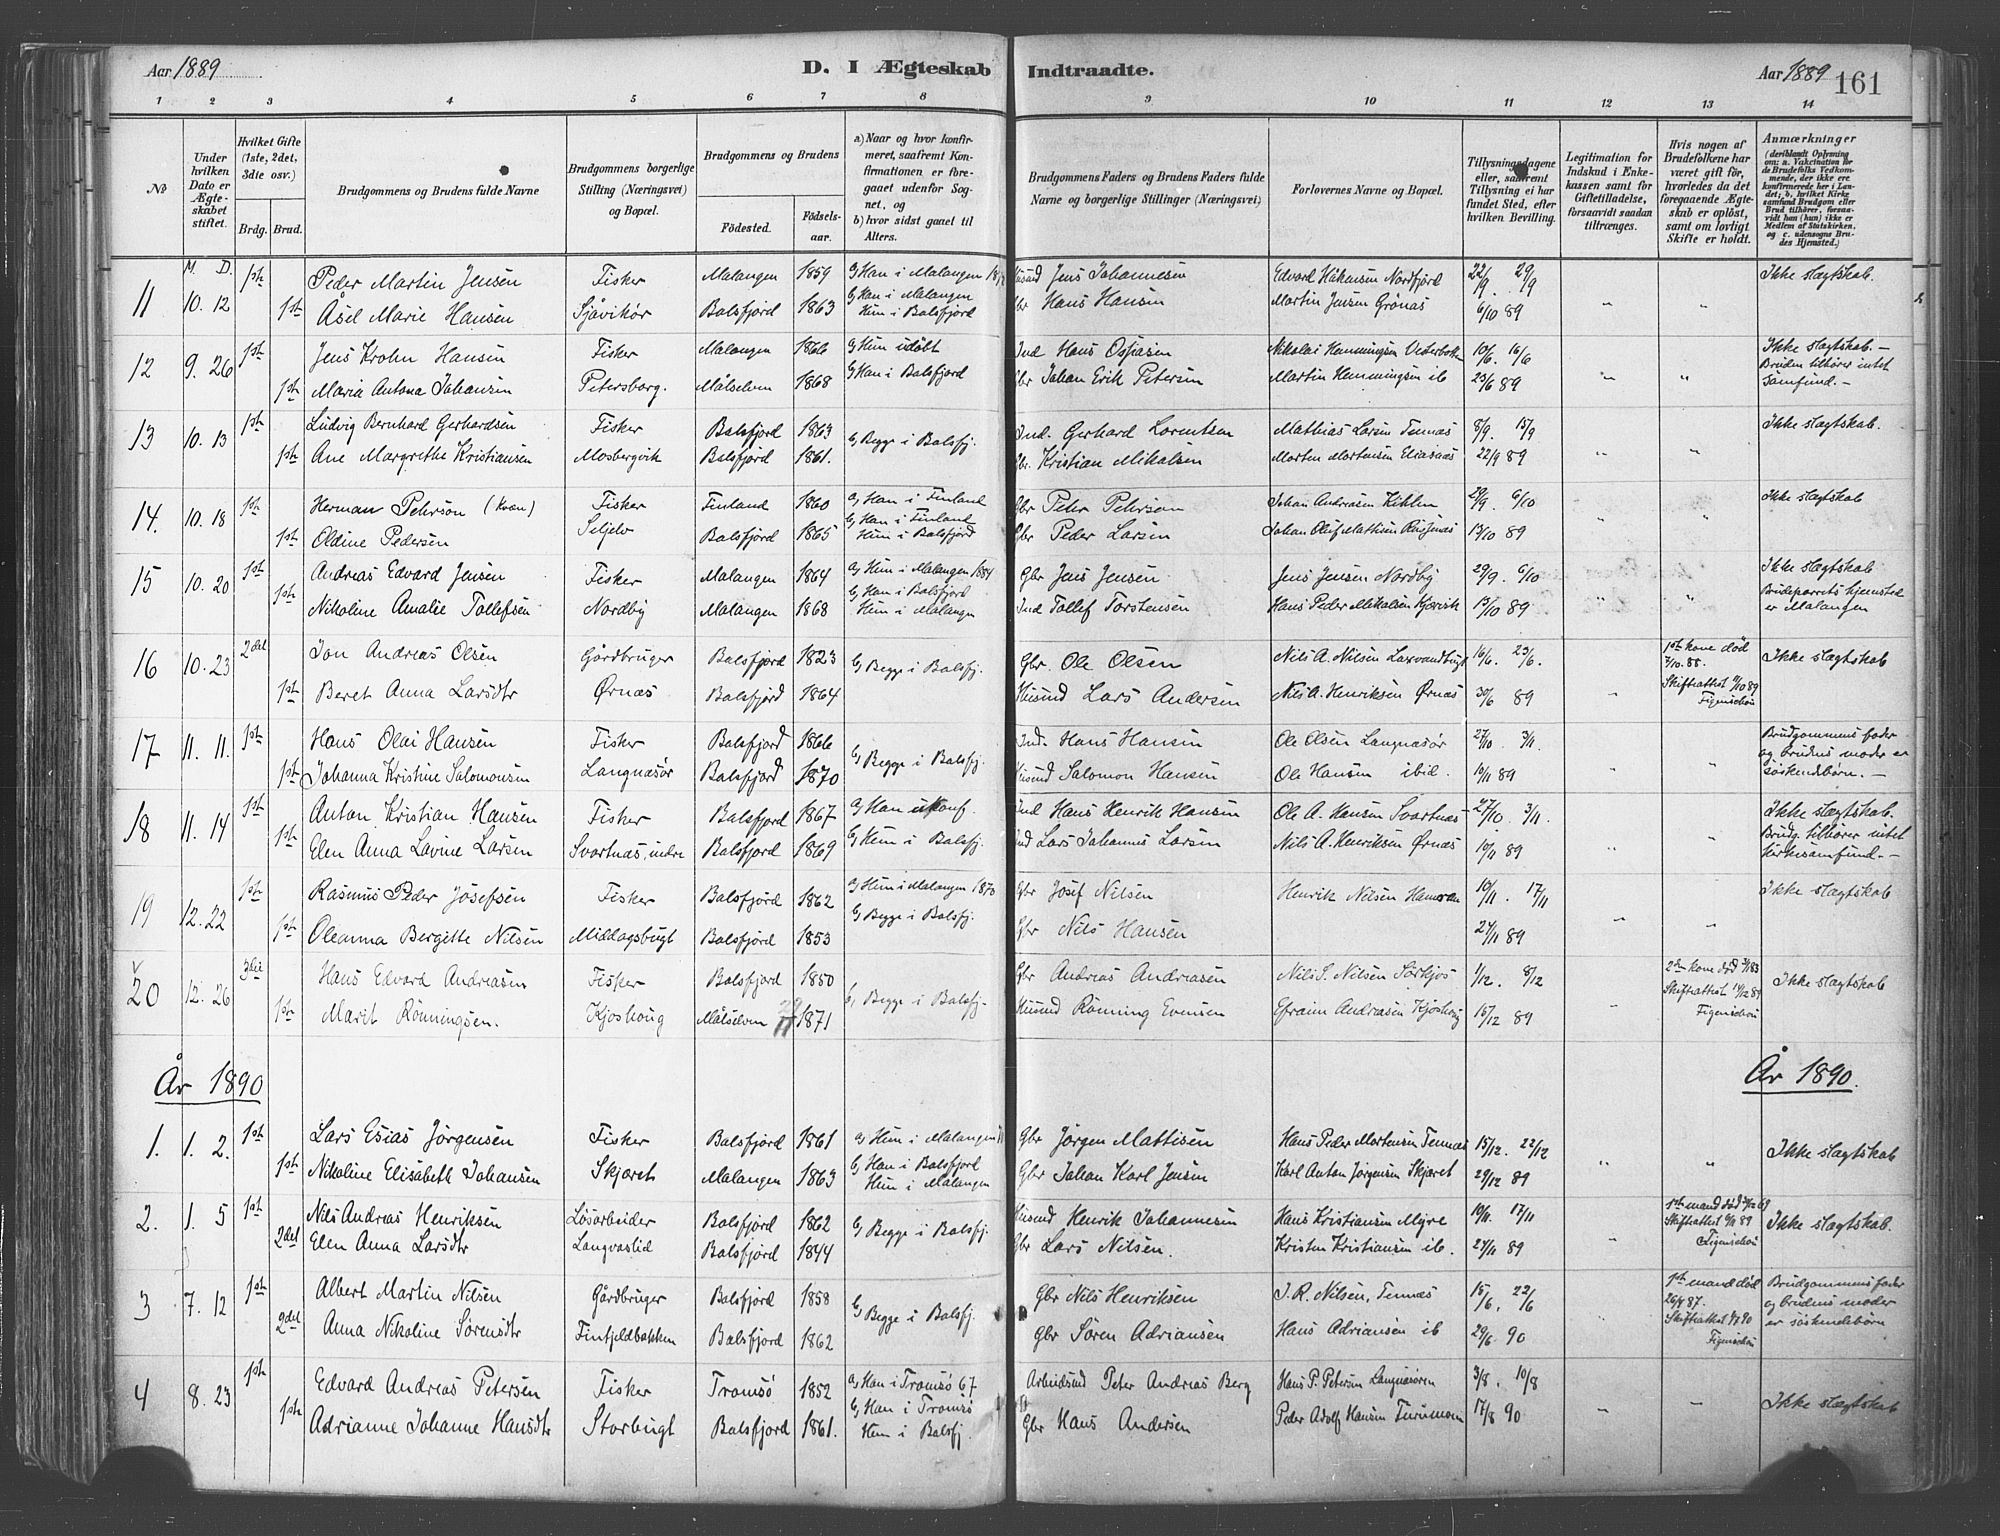 Aar 1889
D. I Ægteskab Indtraadte.
Aar 1889 161
1 2 3 4 5 6 7 8 9 10 11 12 13 14
No
Under hvilken Dato er Ægteskabet stiftet.
Hvilket Gifte (1ste, 2det, 3die osv.)
Brdg. Brud.
Brudgommens og Brudens fulde Navne
Brudgommens borgerlige Stilling (Næringsvei) og Bopæl.
Brudgommens og Brudens
Födested. Födsels-aar.
a) Naar og hvor konfirmeret, saafremt Konfirmationen er foregaaet udenfor Sognet, og
b) hvor sidst gaaet til Alters.
Brudgommens Faders og Brudens Faders fulde Navne og borgerlige Stillinger (Næringsvei)
Forlovernes Navne og Bopæl.
Tillysningsdagene eller, saafremt Tillysning ei har fundet Sted, efter hvilken Bevilling.
Legitimation for Indskud i Enkekassen samt for Giftetilladelse, forsaavidt saadan tiltrænges.
Hvis nogen af Brudefolkene har været gift för, hvorledes da det foregaaende Ægteskab er oplöst, samt om lovligt Skifte er holdt.
Anmærkninger
(deriblandt Oplysning om: a. Vakcination for de Brudefolks Vedkommende, der ikke ere konfirmerede her i Landet; b. hvilket Kirkesamfund Brudgom eller Brud tilhörer, forsaavidt han (hun) ikke er Medlem af Statskirken, og c. udensogns Brudes Hjemsted.)
M. D.
11 10. 12 1ste Peder Martin Jensen Fisker Malangen 1859 a, Han i Malangen Husmd Jens Johannesen Edvard Håkensen Nordfjord 22/9. 29/9 Ikke slagtskab.
1ste Åsel Marie Hansen Sjåvikør Balsfjord 1863 b, Han i Malangen Hun i Balsfjord Gbr Hans Hansen Martin Jensen Grönås 6/10 89 " "
12 9. 26 1ste Jens Krohn Hansen Fisker Malangen 1866 a, Hun udöbt Ind Hans Ossiasen Nikolai Hemmingsen Vesterbotten 10/6. 16/6 Ikke slagtskab. -
1ste Maria Antona Johansen Petersborg. Målselven 1868 b, Han i Balsfjord Gbr Johan Erik Petersen Martin Hemmingsen ib 23/6 89 " " Bruden tilhörer intet samfund. -
13 10. 13 1ste Ludvig Bernhard Gerhardsen Fisker Balsfjord 1863 Ind. Gerhard Lorentsen Mathias Larsen Tennæs 8/9. 15/9 Ikke slagtskab.
1ste Ane Margrethe Kristiansen Mosbergvik Balsfjord 1861. b, Begge i Balsfj. Gbr. Kristian Mikalsen Morten Mortensen Eliasaas 22/9 89 " "
14. 10. 18 1ste Herman Peterson (Kvæn) Fisker Finland 1860 a, Han i Finland Gbr Peter Peterson Johan Andreasen 29/9. 6/10 Ikke slagtskab
1ste Oldine Pedersen Seljelv Balsfjord 1865 b, Han i Finland Hun i Balsfjord Gbr Peder Larsen Johan Oluf Mathisen Russenæs 13/10 89 " "
15 10. 20 1ste Andreas Edvard Jensen Fisker Malangen 1864 a, Hun i Malangen 1884 Gbr Jens Jensen Jens Jensen Nordby 29/9. 6/10 Ikke slagtskab
1ste Nikoline Amalie Tollefsen Nordby Malangen 1868 b, Han i Balsfjord Hun i Malangen Ind Tollef Torstensen Hans Peder Mikalsen Kjærvik 13/10 89 " " Brudeparrets hjemsted er Malangen
16 10. 23 2det Jon Andreas Olsen Gårdbruger Balsfjord 1823 b, Begge i Balsfj. Gbr. Ole Olsen Nils A. Nilsen Laxvandbugt 16/6. 23/6. 1ste kone død 7/10 88. Ikke slagtskab
1ste Beret Anna Larsdtr Ørnæs Balsfjord 1864 Husmd Lars Andersen Nils A. Henriksen Ørnæs 30/6 89 " Skifteattest 11/10 89 Figenschou
17 11. 11. 1ste Hans Olai Hansen Fisker Balsfjord 1866 b, Begge i Balsfj. Ind. Hans Hansen Ole Olsen Langnæsør 27/10. 3/11. Brudgommens fader og brudens moder er söskendebörn. -
1ste Johanna Kristine Salomonsen Langnæsør Balsfjord 1870 Husmd Salomon Hansen Ole Hansen ibid. 10/11 89 " "
18 11. 14 1ste Anton Kristian Hansen Fisker Balsfjord 1867 a, Han ukonf. Ind Hans Henrik Hansen Ole A. Hansen Svartnæs 27/10. 3/11. Ikke slagtskab.
1ste Elen Anna Lavine Larsen Svartnæs, indre Balsfjord 1869 b, Hun i Balsfj. Ind Lars Johannes Larsen Nils A. Henriksen Ørnæs 10/11 89 " " Brudg. tilhörer intet kirkesamfund. -
19 12. 22 1ste Rasmus Peder Josefsen Fisker Balsfjord 1862 a, Hun i Malangen 1870 Gbr Josef Nilsen Henrik Nilsen 10/11. 17/11 Ikke slagtskab
1ste Oleanna Bergitte Nilsen Middagsbugt Balsfjord 1853 b, Begge i Balsfj. Gbr Nils Hansen 24/11 89 " "
20 12. 26 3die Hans Edvard Andreasen Fisker Balsfjord 1850 b, Begge i Balsfj. Gbr Andreas Andreasen Nils S. Nilsen Sörkjos 1/12. 8/12 2den kone död Ikke slagtskab
1ste Marit Rönningsen. Kjoshoug Målselven 1871 Husmd Rönning Evensen Efraim Andreasen Kjoshoug 15/12 89 " Skifteattest 14/12 89 Figenschou
År 1890 År 1890.
1. 1. 2. 1ste Lars Esias Jörgensen Fisker Balsfjord 1861 a, Hun i Malangen Gbr Jörgen Mattisen Hans Peder Mortensen Tennæs 15/12. 22/12 Ikke slagtskab
1ste Nikoline Elisabeth Johansen Skjæret Malangen 1863 b, Han i Balsfjord Hun i Malangen Gbr Johan Karl Jensen Karl Anton Jørgensen Skjæret 29/12 89 " "
2. 1. 5 1ste Nils Andreas Henriksen Løsarbeider Balsfjord 1862 b, Begge i Balsfj. Husmd Henrik Johannesen Hans Kristiansen Myre 10/11. 17/11 1ste mand død Ikke slagtskab.
2det Elen Anna Larsdtr Langvastid Balsfjord 1844 Gbr Lars Nilsen. Kristen Kristiansen ib. 24/11 89 " Skifteattest 9/11 89 Figenschou
3 7. 12 1ste Albert Martin Nilsen Gårdbruger Balsfjord 1858 b, Begge i Balsfj. Gbr Nils Henriksen J. R. Nilsen, Tennæs 15/6. 22/6 1ste mand död Brudgommens fader og brudens moder er söskendebörn
2det Anna Nikoline Sörensdtr Finfjeldbakken Balsfjord 1862 Gbr Sören Adriansen Hans Adriansen ib 29/6. 90 Skifteattest Figenschou
4 8. 23 1ste Edvard Andreas Petersen Fisker Tromsö 1852 a, Han i Tromsö 67 Arbeidsmd Peter Andreas Berg Hans P. Petersen Langnæsören 3/8. 10/8
1ste Adrianne Johanne Hansdtr Storbugt Balsfjord 1861. b, Han i Tromsö Hun i Balsfj. Gbr Hans Andersen Peder Adolf Hansen 17/8 90 " " Ikke slagtskab